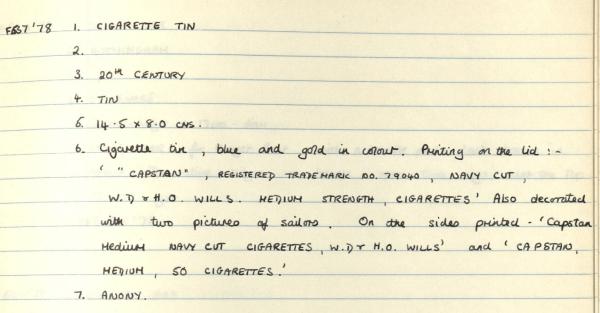 FEST '78 1. CIGARETTE TIN
2.
3. 20th CENTURY
4. TIN
5. 14.5 x 8.0 cms.
6. Cigarette tin, blue and gold in colour. Printing on the lid :-
' "CAPSTAN", REGISTERED TRADEMARK NO. 79040, NAVY CUT,
W.D & H.O. WILLS. MEDIUM STRENGTH, CIGARETTES' Also decorated
with two pictures of sailors. On the sides printed - 'Capstan
Medium NAVY CUT CIGARETTES, W.D & H.O. WILLS' and 'CAPSTAN,
MEDIUM, 50 CIGARETTES.'
7. ANONY.